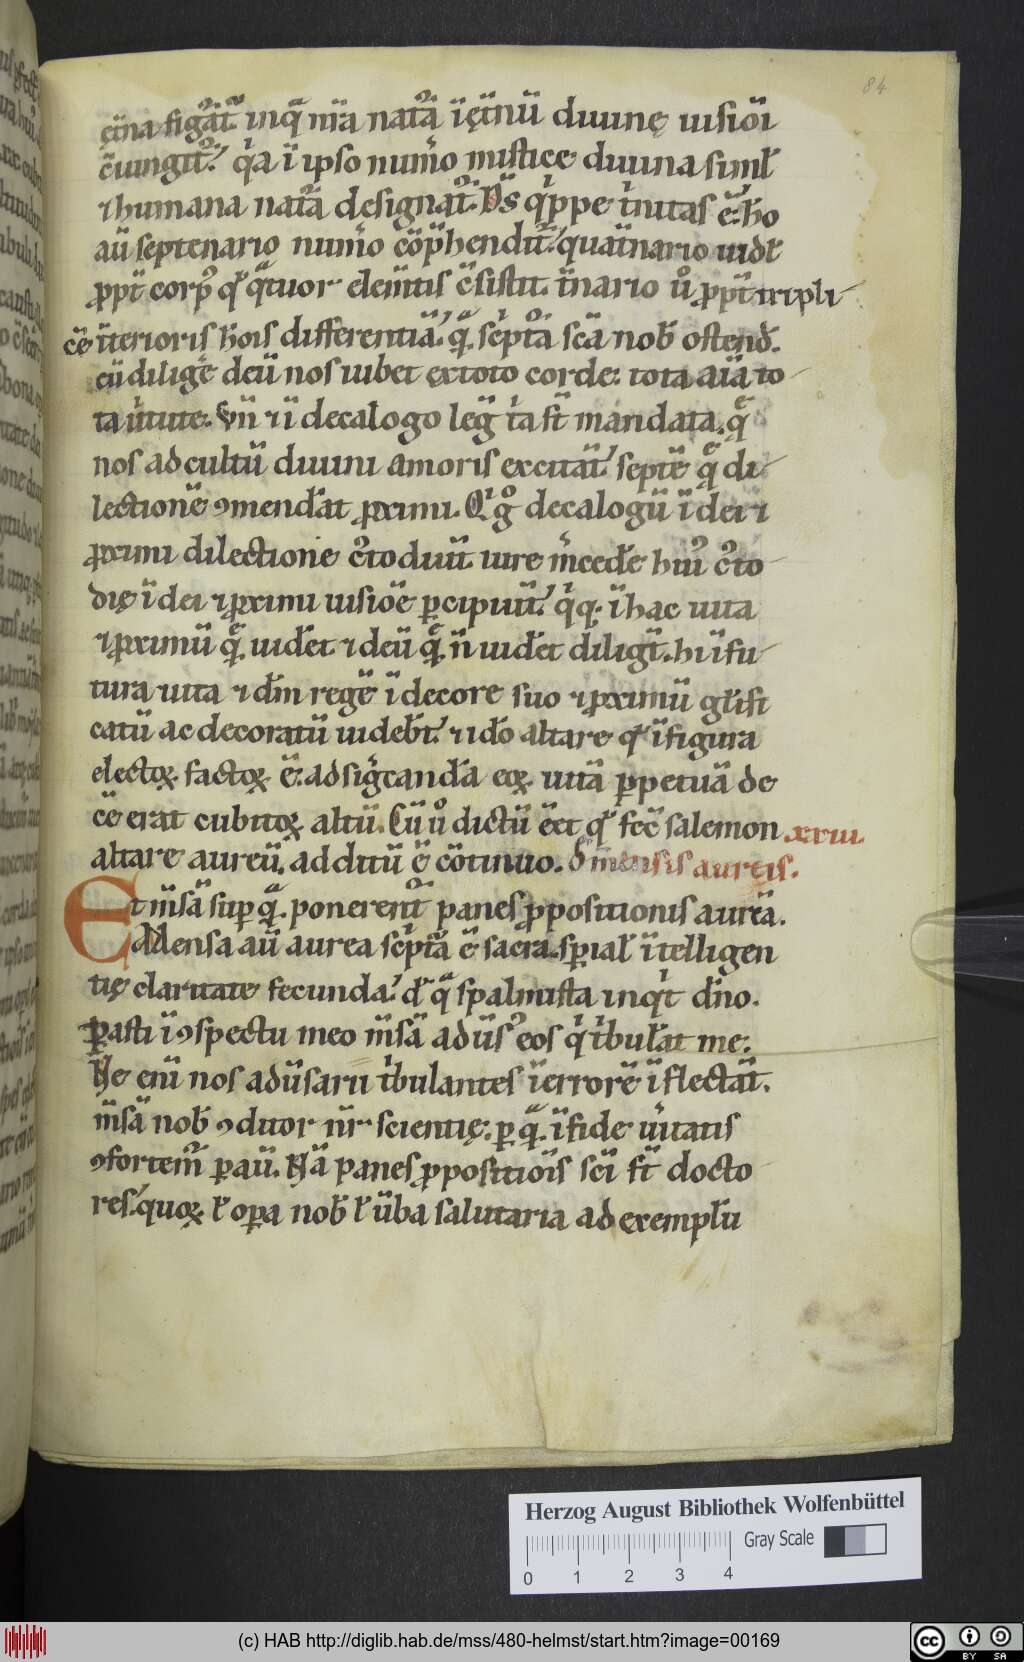 84
ęt̅na figᵃt᷑. inq̅ nr̅a nat᷑a i̅ ęt̅nu̅ diuinę uisio̅i
c̅iungit᷑. qⁱa i̅ ipso num̅o mistice diuina simł
⁊ humana nat᷑a designat᷑. Ds̅ qⁱppe tⁱnitas e̅. ho̅
au̅ septenario num̅o co̅p̅hendit᷑. quat̅nario uidꝉ
ꝓpt̅ corpꝰ qđ qᵃtuor elem̅tis c̅sistit. t̅nario ů ꝓpt̅ tripli
ce̅ i̅terioris ho̅is differentia̅. q̨̅ scⁱpt᷑a sc̅a nob̅ ostend̅.
cu̅ dilig̅e deu̅ nos iubet ex toto corde. tota ai̅a to
ta uⁱtute. Vn̅ ⁊ i̅ decalogo leg̅ tⁱa st̅ mandata. q̨̅
nos ad cultu̅ diuini amoris excita̅t. septe̅ q̨̅ di
lectione̅ ꝯmenda̅t ꝓximi. Qⁱ g̊ decalogu̅ i̅ dei ⁊
ꝓximi dilectione c᷑todiu̅t. iure m̅cede̅ huiꝰ c᷑to
dię i̅ dei ⁊ ꝓximi uisio̅e p̱cipiu̅t. qⁱq. i̅ hac uita
⁊ ꝓximu̅ q̨̅. uide̅t ⁊ deu̅ q̨̅. n̅ uide̅t diligu̅t. hi i̅ fu
tura uita ⁊ dm̅ rege̅ i̅ decore suo ⁊ ꝓximu̅ glⁱfi
catu̅ ac decoratu̅ uideb̅t. ⁊ ido̅ altare qđ i̅ figura
electoꝝ factoꝝ e̅. ad sigⁱcanda̅ eoꝝ uita̅ p̱petua̅ de
ce̅ erat cubitoꝝ altu̅. Cu̅ ů dictu̅ e̅et qđ fec̅ salemon xxiii.
altare aureu̅. additu̅ e̅ co̅tinuo. đ mensis aureis.
Et m̅sa̅ sup̱ q̨̅. ponerent᷑ panes ꝓpositionis aurea̅.
Mensa au̅ aurea scⁱpt᷑a e̅ sacra. sp̱iał i̅telligen
tię claritate fecunda. đ qᵃ spalmista inqⁱt dn̅o.
Parasti i̅ ꝯspectu meo m̅sa̅ adu̅sꝰ eos qⁱ tⁱbulat̅ me.
Ne eni̅ nos adu̅sarii tⁱbulantes i̅ errore̅ i̅flecta̅t.
m̅sa̅ nob̅ ꝯditor nr̅ scientię. p̱ q̨̅. i̅ fide uⁱtatis
ꝯfortem᷑ parau̅. Na̅ panes ꝓpositio̅is sc̅i st̅ docto
res. quoꝝ ł op̱a nob̅ ł u̅ba salutaria ad exemplu̅
Herzog August Bibliothek Wolfenbüttel
Gray Scale
0 1 2 3 4
(c) HAB http://diglib.hab.de/mss/480-helmst/start.htm?image=00169
cc BY SA